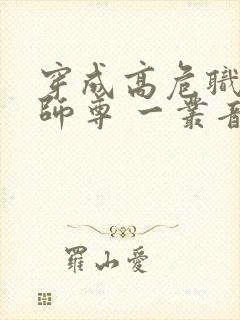 穿成高危職
師尊 一叢音
羅山愛